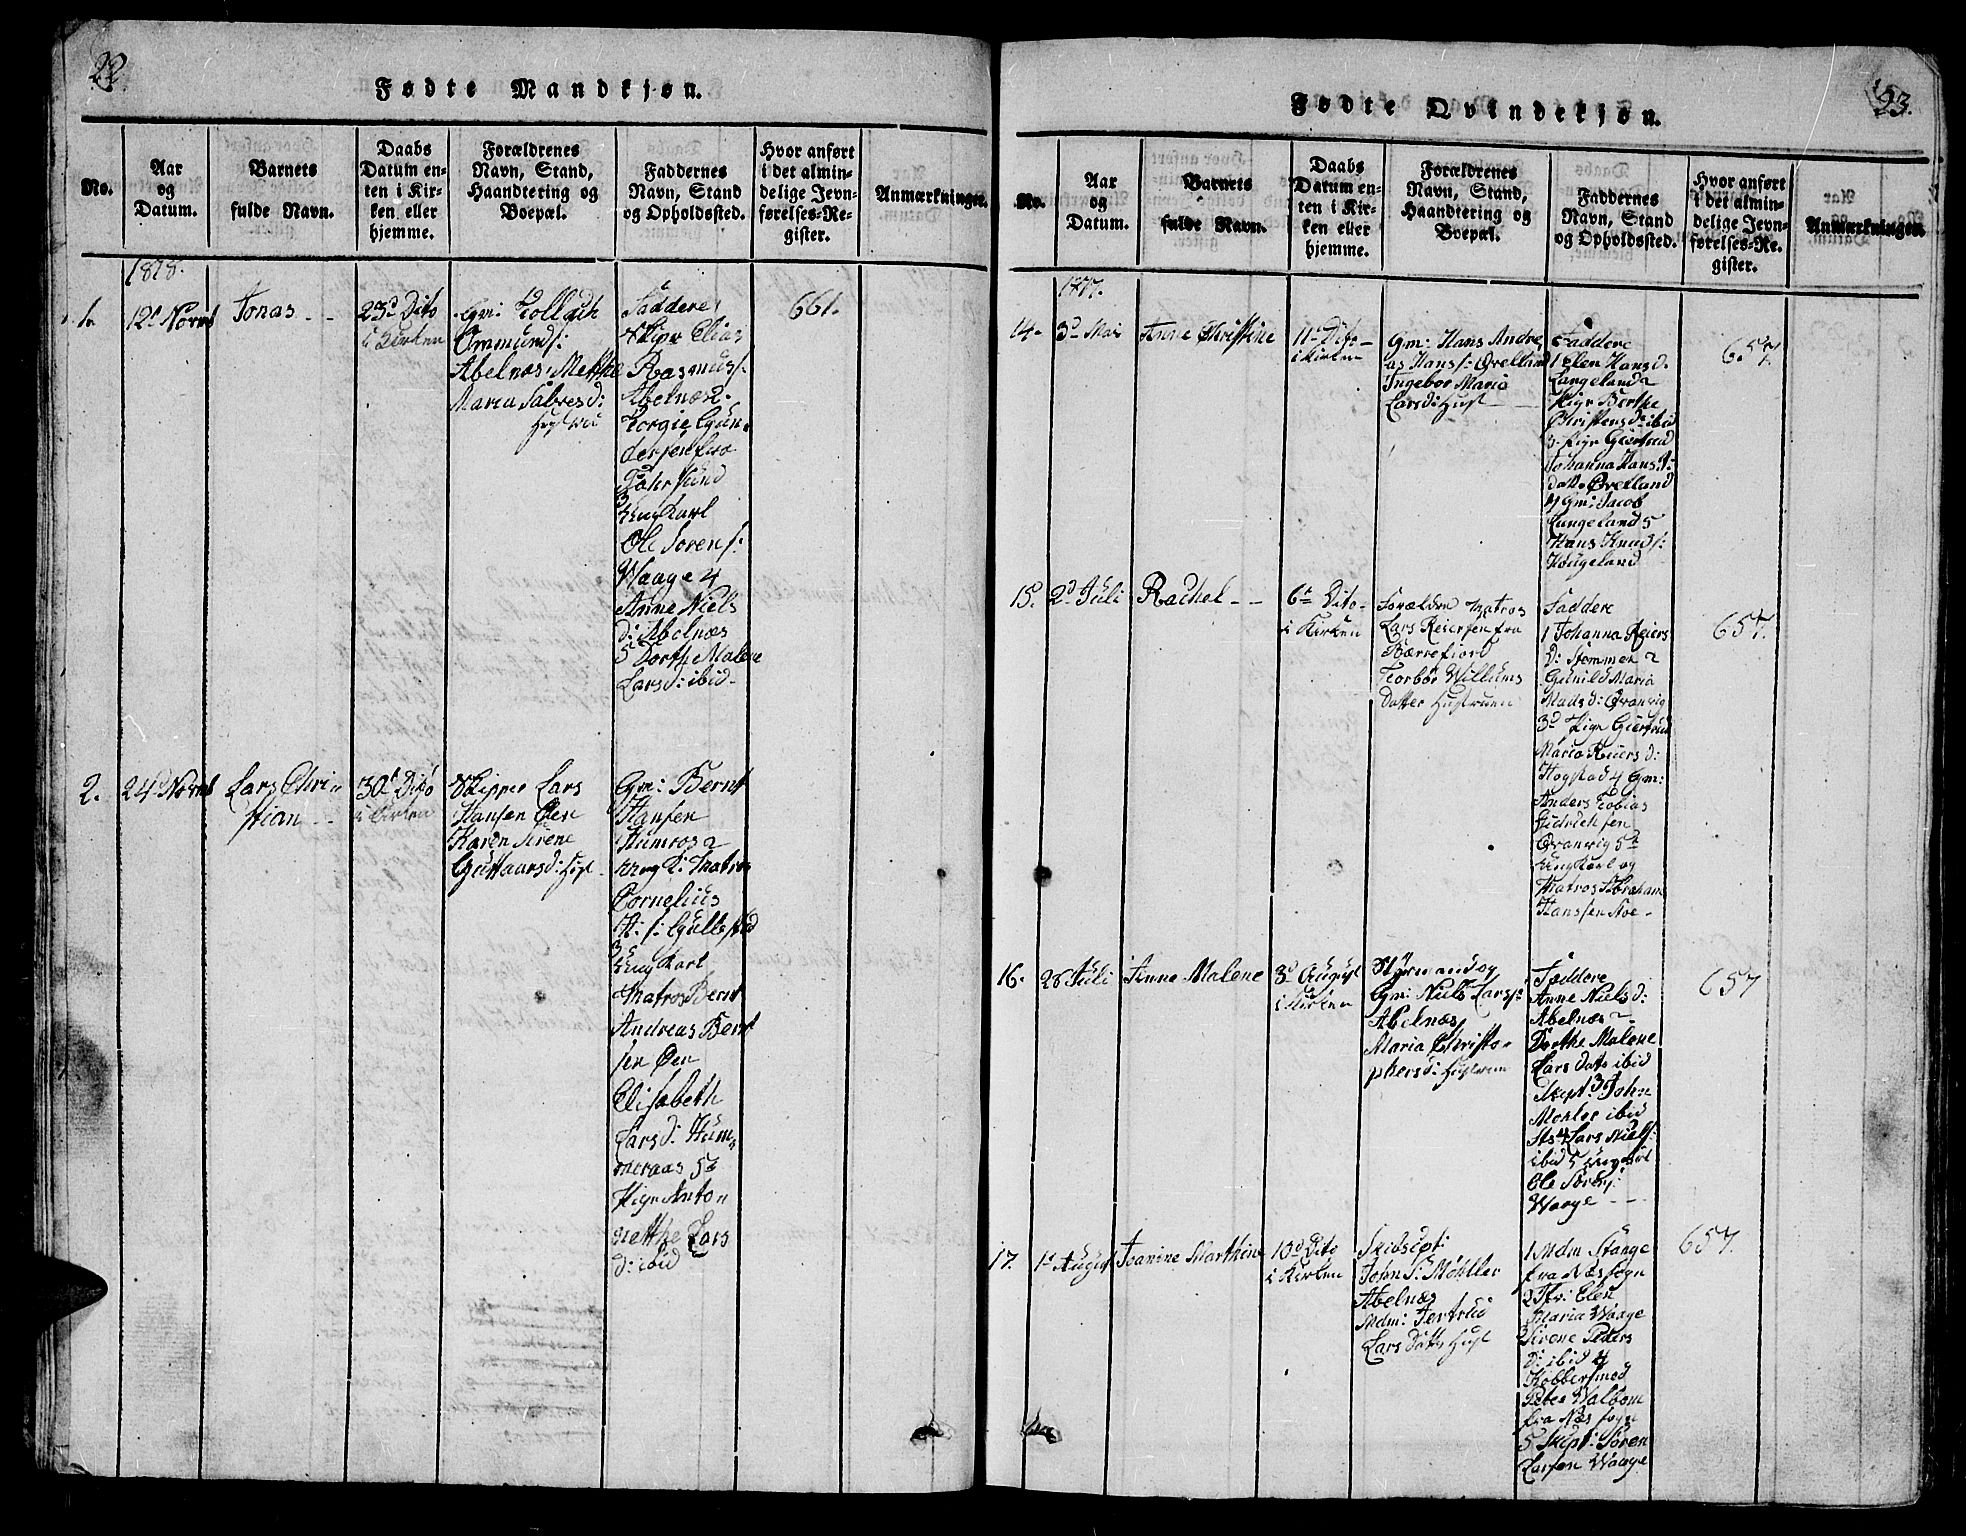 22
Fødte Mandkjøn.
No.
Aar
og
Datum.
Barnets
fulde Navn.
Daabs
Datum en-
ten i Kir-
ken eller
hjemme.
Forældrenes
Navn, Stand,
Haandtering og
Boepæl.
Faddernes
Navn, Stand
og Opholdssted.
Hvor anført
i det almin-
delige Jevn-
førelses-Re-
gister.
Anmærkninger.
1818.
1.
12t Novb
Jonas
23d Dito
i Kirken
Gm: Tollach
Ommunds:
Abelnæs, Mette
Maria Salvesd:
Faddere
Elias
Rasmus:
Abelnæs 2.
Torgie Gun-
dersen fra
Fahrsund
3 Ung Karl
Ole Sorens:
Waage 4
Anne Niels
d: Abelnæs
5 Dorthe Malene
Larsd: ibid
661.
2.
24d Novb
Lars Chri-
stian
30d Dito
i Kirken
Skipper Lars
Hansen Øen
Karen Sirene
Guttormsd: Hust
Gm: Bernt
Hansen
Humros 2
Ung K: Matros
Cornelius
H: s: Gullestad
3 Ung Karl
Matros Bernt
Andreas Bernt
sen Øen
Elisabeth
Larsd: Hum-
meraas 5t
Pige Anto
nette Lars
d: ibid
23.
Fødte Qvindekjøn.
No.
Aar
og
Datum.
Barnets
fulde Navn.
Daabs
Datum en-
ten i Kir-
ken eller
hjemme.
Forældrenes
Navn, Stand,
Haandtering og
Boepæl.
Faddernes
Navn, Stand
og Opholdssted.
Hvor anført
i det almin-
delige Jevn-
førelses-Re-
gister.
Anmærkninger.
1817.
14.
3d Mai
Anne Christine
11 Dito
i Kirken
Gm: Hans Andre
as Hans s: Øvelland
Ingebor Maria
Larsd: Hust
Faddere
1 Elen Hansd.
Langeland 2
Pige Berthe
Christensd: ibid
3. Pige Giertrud
Johanna Hans
datt. Øvelland
4 Gm: Jacob
Langeland 5
Hans Knuds:
Hougeland
657.
15.
2d Juli
Rachel
6te Dito
i Kirken
Forældre Matros
Lars Reiersen fra
Bærefiord
Torbor Willums
Datter Hustruen
Faddere
1 Johanna Reiers
D: Stemmen 2
Gunild Maria
Madsd: Qvanvig
3d Pige Giertrud
Maria Reiersd:
Hogstad 4 Gm:
Anders Tobias
Fridrichsen
Qvanvig 5te
Ung Karl og
Matros Abraham
Hanssen Aae
657.
16.
28 Juli
Anne Malene
3d August
i Kirken
Styrmand og
Gm: Niels Lars s:
Abelnæs
Maria Christo-
phersd: Hustruen
Faddere
Anne Nielsd:
Abelnæs 2
Dorthe Malene
Lars Datt ibid
Skipt 3 John
Mohler ibid
4 Lars Niels:
ibid 5 Ung Karl
Ole Sorens:
Waage
657
17.
1t August
Joanine Marthine
10d Dito
i Kirken
Skibscpt:
John S: Møhller
Abelnæs
Mdm: Jertrud
Lars Datt Hust
1 Mdm Stange
fra Næs sogn
2 Jfr: Elen
Maria Waage
3 Sirene Peders
D: ibid 4
Kobbersmed
Peter Walbom
fra Næs sogn
5 Skpt: Soren
Larsen Waage
657.